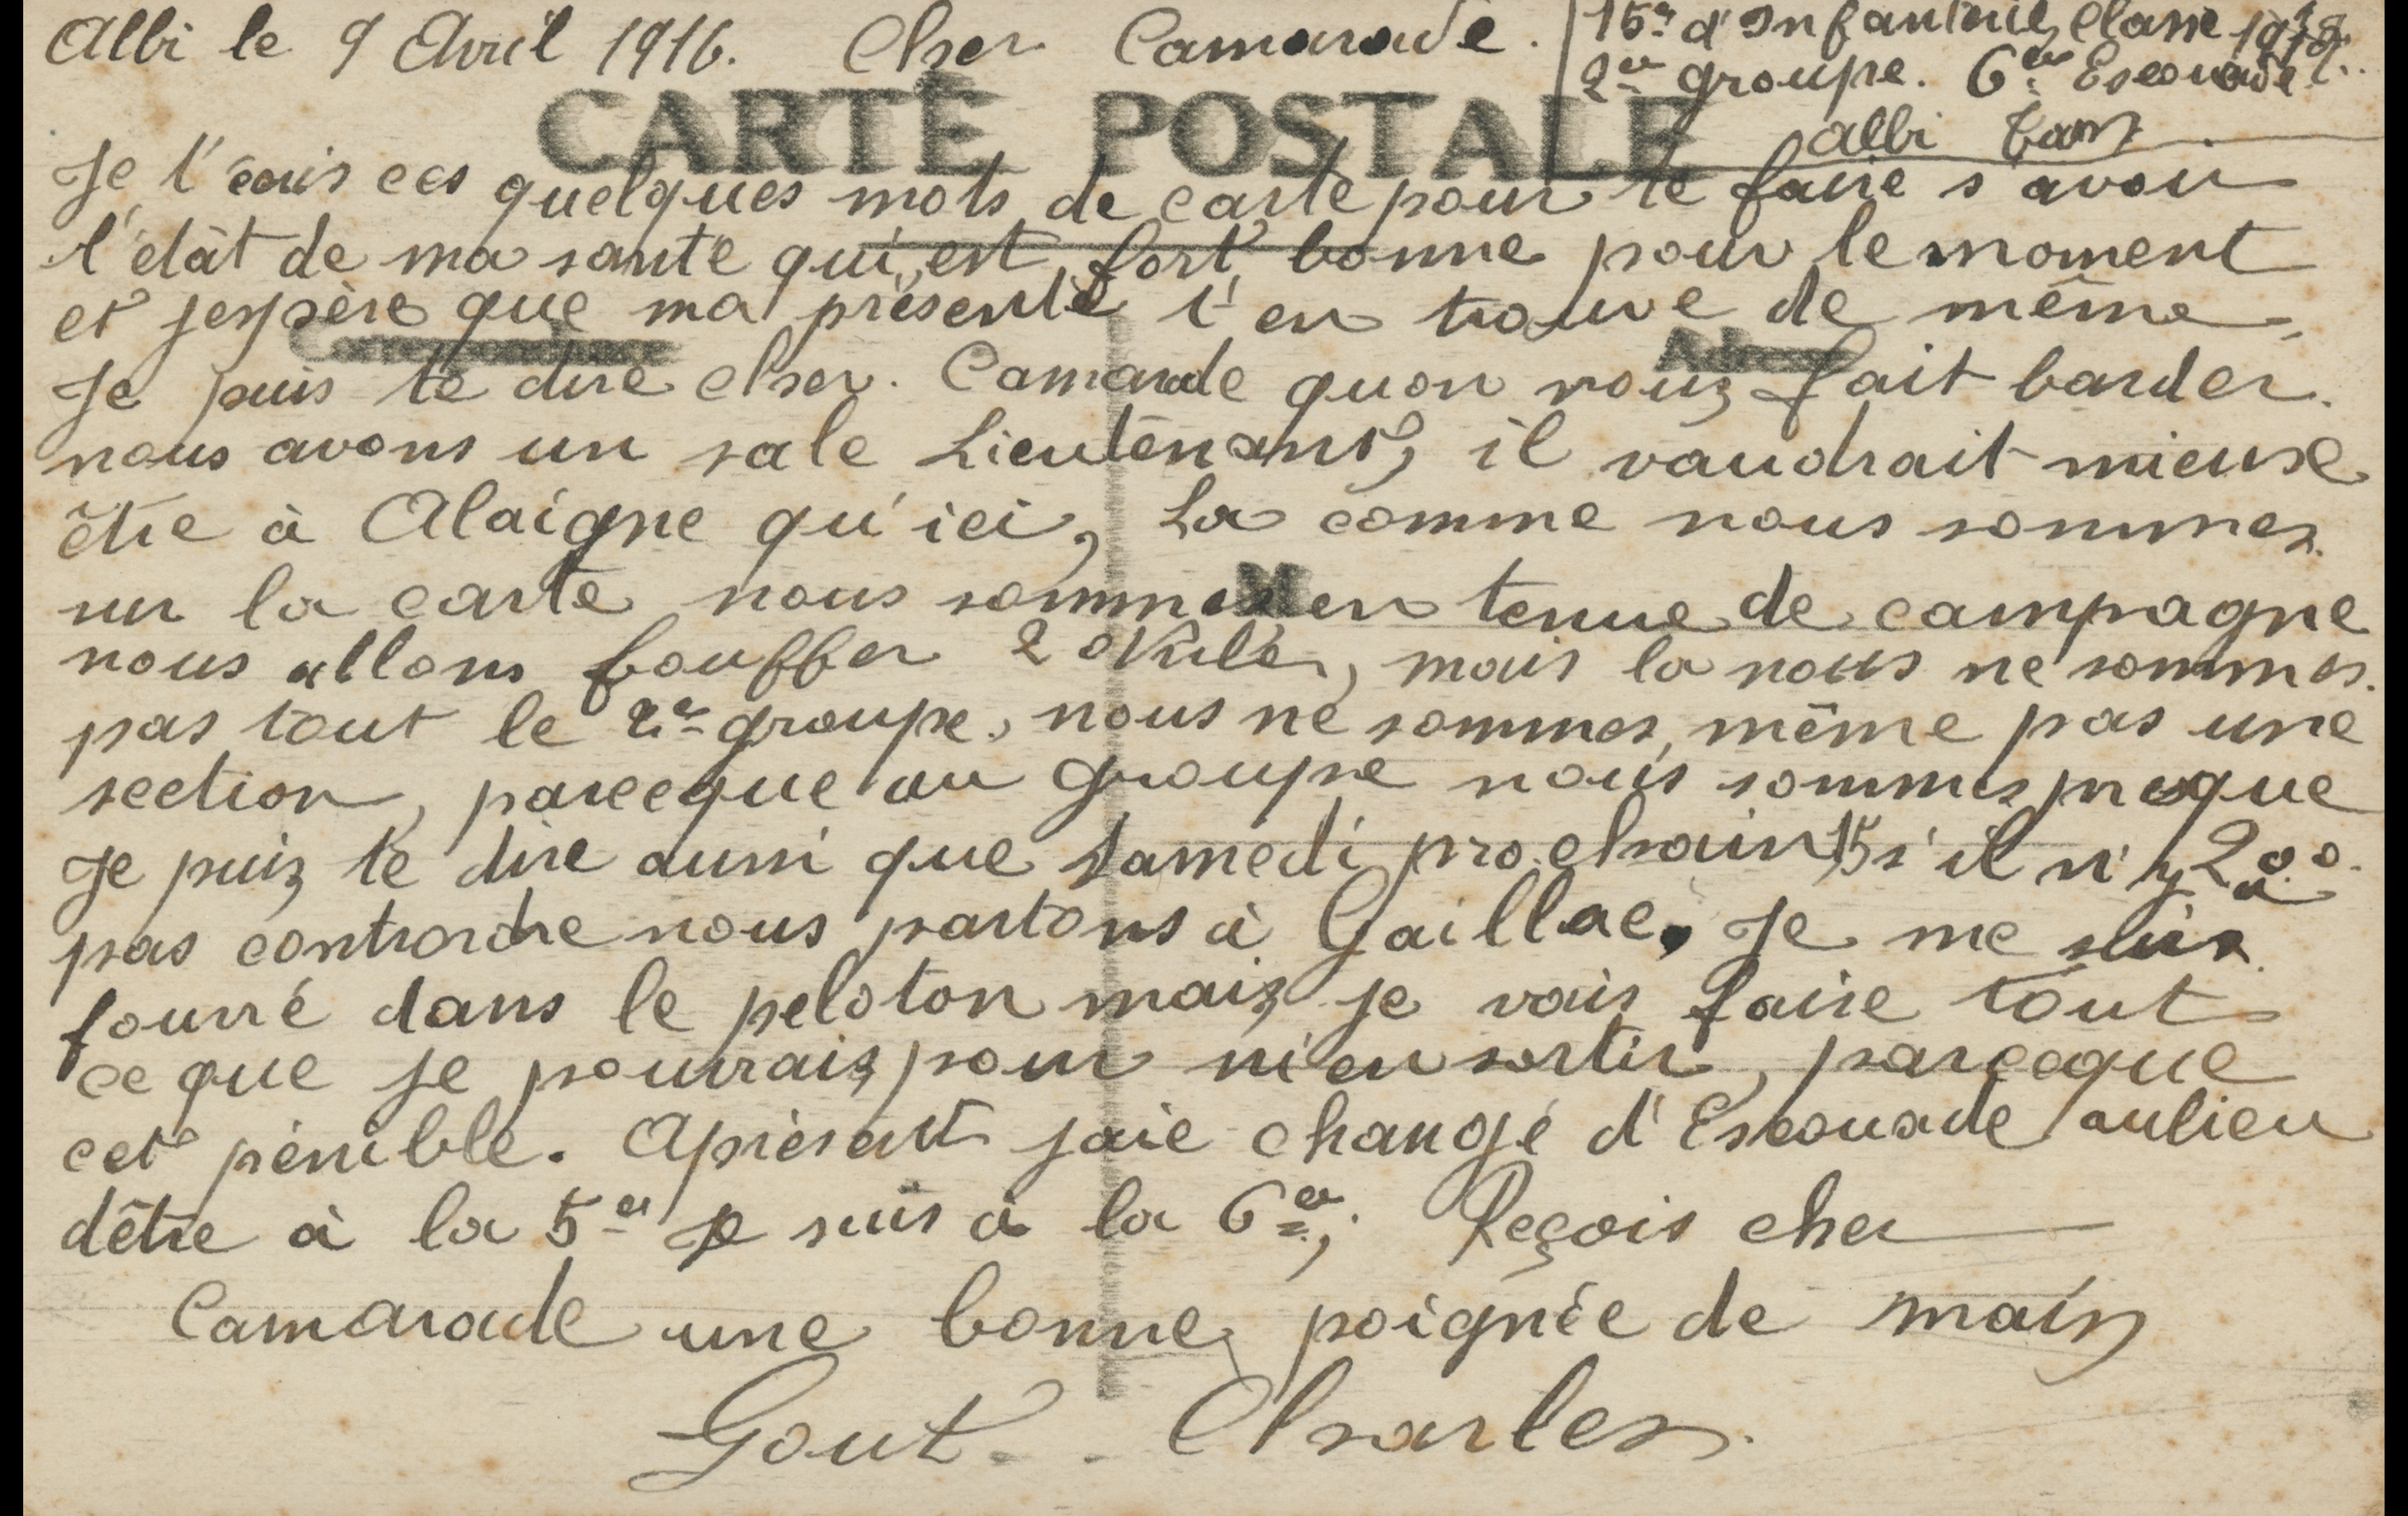 Albi le 9 Avril 1916. Cher Camarade.
15e d'Infanterie, Classe
2em groupe. 6em Escouade.
Albi Tarn
CARTE POSTALE
Je t'écris ces quelques mots de carte pour te faire s'avoir
l'étât de ma santé qui est fort bonne pour le moment
et jespère que ma présente t'en trouve de même,
Correspondance
Je puis te dire cher. Camarade quon nous fait barder.
nous avons un sale Lieutenant, il vaudrait mieuse
être à Alaigne qu'ici, La comme nous sommes
sur la carte nous sommes en tenue de campagne
M
nous allons bouffer 2 Kulés, mais la nous ne sommes
pas tout le 2e groupe, nous ne sommes, même pas une
section, parceque au groupe nous sommes presque
200.
Je puis te dire aussi que Samedi prochain 15 s'il n'y a
pas contrordre nous partons à Gaillac. Je me suis
fourré dans le peloton mais je vais faire tout
ce que je pourrais pour m'en sortir, parceque
cet pénible. Aprèsent jaie changé d'Escouade aulieu
dêtre à la 5em je suis à la 6em; Reçois cher
Camarade une bonne poignée de main
Gout. Charles.